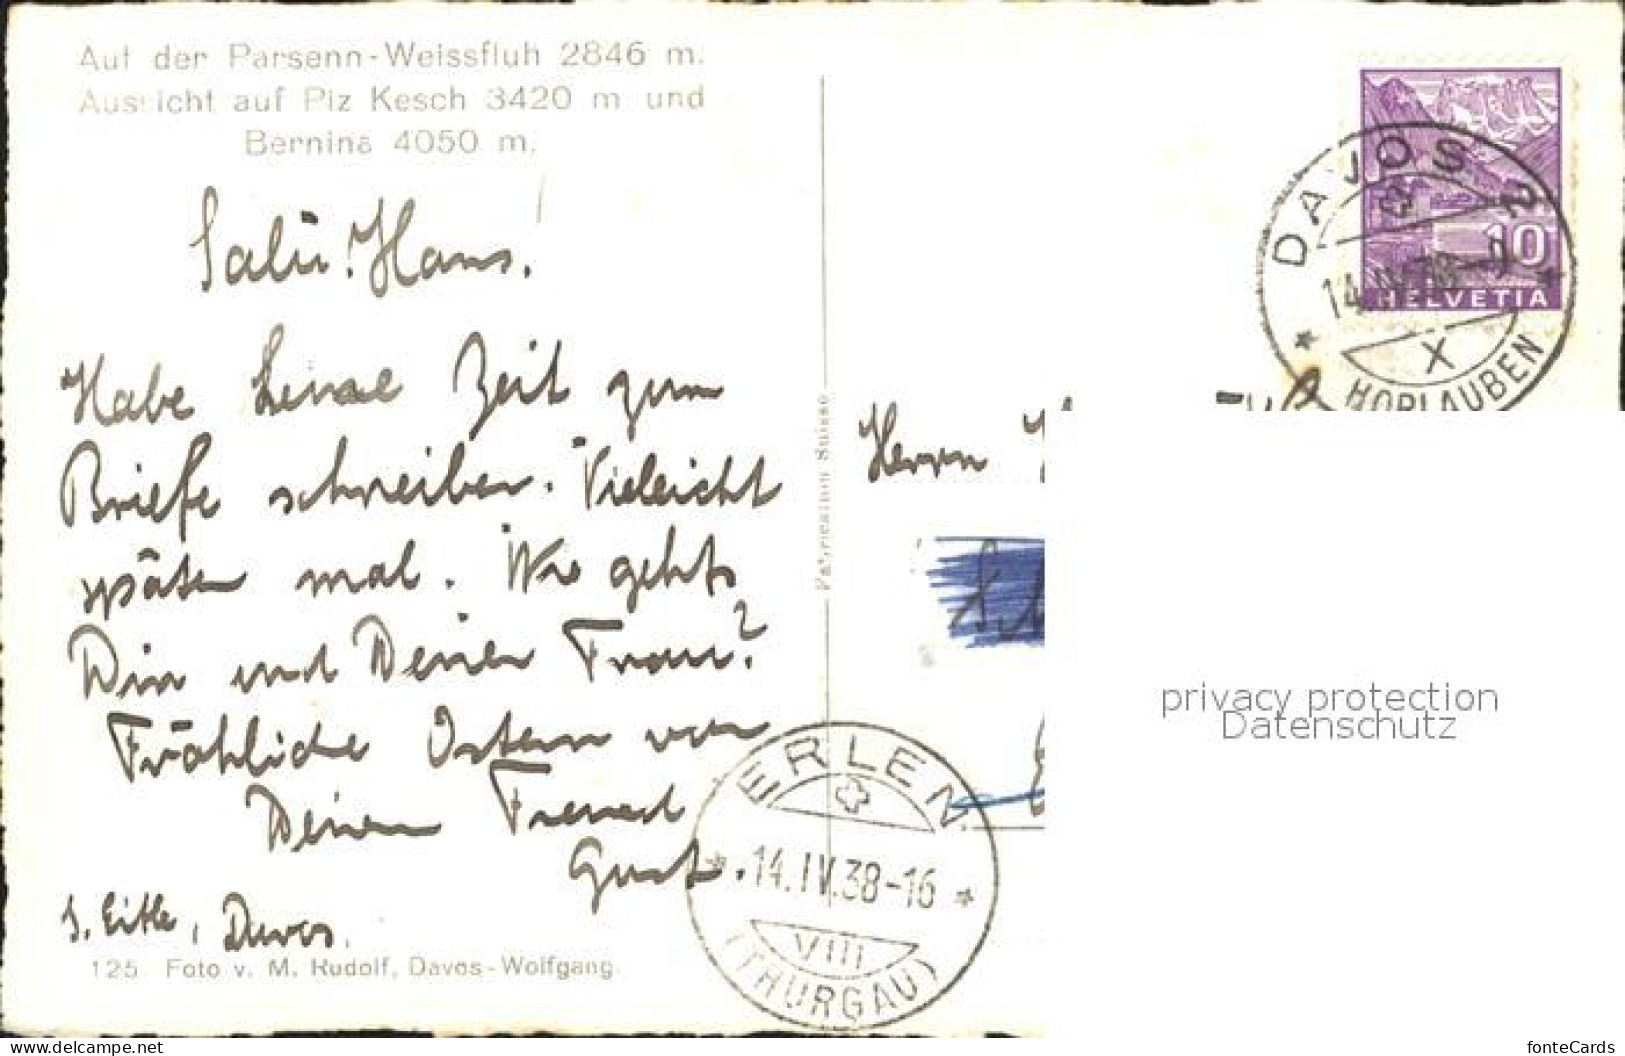 Auf der Parsenn-Weissfluh 2846 m.
Aussicht auf Piz Kesch 3420 m und
Bernina 4050 m.
Salü! Hans.
Habe keine Zeit zum
Briefe schreiben. Vieleicht
später mal. Wie gehts
Dir und Deiner Frau?
Fröhliche Ostern von
Deinem Freund
Gust.
Davos.
125 Foto v. M. Rudolf, Davos-Wolfgang.
Fabrication Suisse
10
HELVETIA
DAVOS 2
14.IV.38-9
X
HORLAUBEN
Herrn
privacy protection
Datenschutz
ERLEN
14.IV.38-16
VIII
(THURGAU)
https://www.ak-ansichtskarten.de
fonteCards